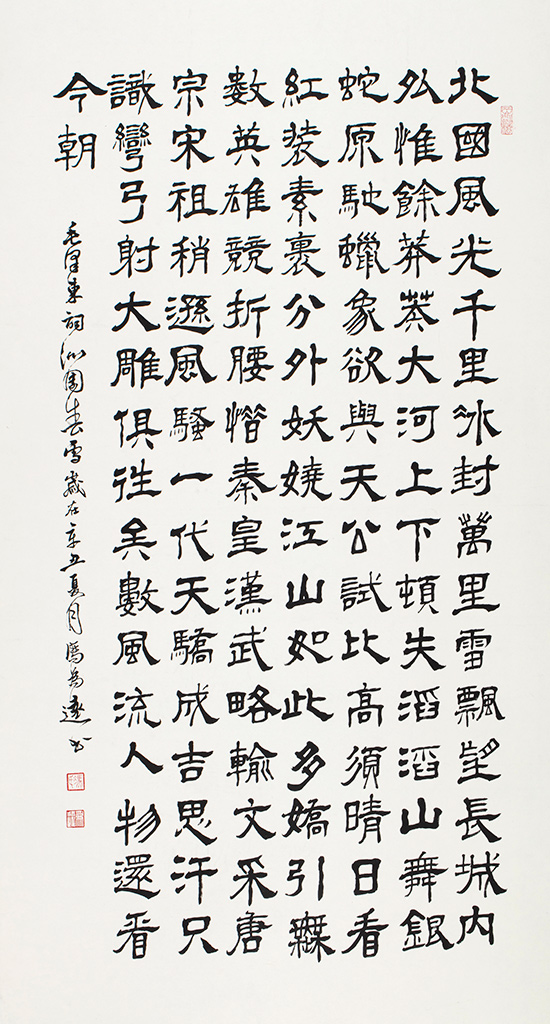 北國風光千里冰封萬里雪飄望長城內
外惟餘莽莽大河上下頓失滔滔山舞銀
蛇原馳蠟象欲與天公試比高須晴日看
紅裝素裹分外妖嬈江山如此多嬌引無
數英雄競折腰惜秦皇漢武略輸文采唐
宗宋祖稍遜風騷一代天驕成吉思汗只
識彎弓射大雕俱往矣數風流人物還看
今朝
毛澤東詞沁園春雪歲在辛丑夏月書